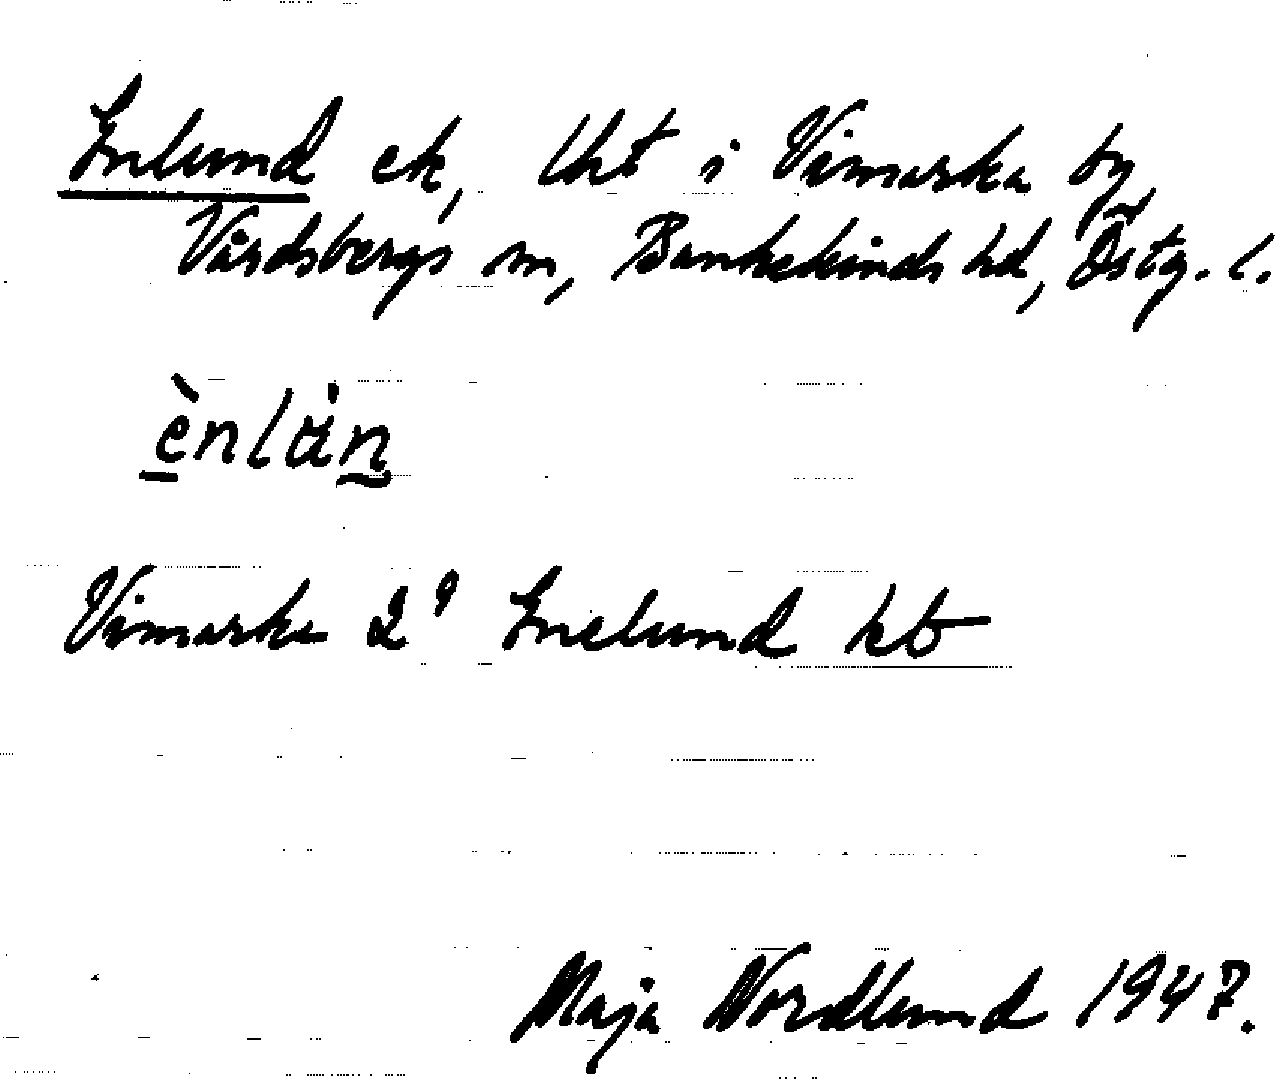 Enlund ek, lht i Vimarka by,
Vårdsbergs sn, Bankekinds hd, Östg. l.
ènlán
Vimarka 2⁹ Enelund kb
Maja Nordlund 1947.